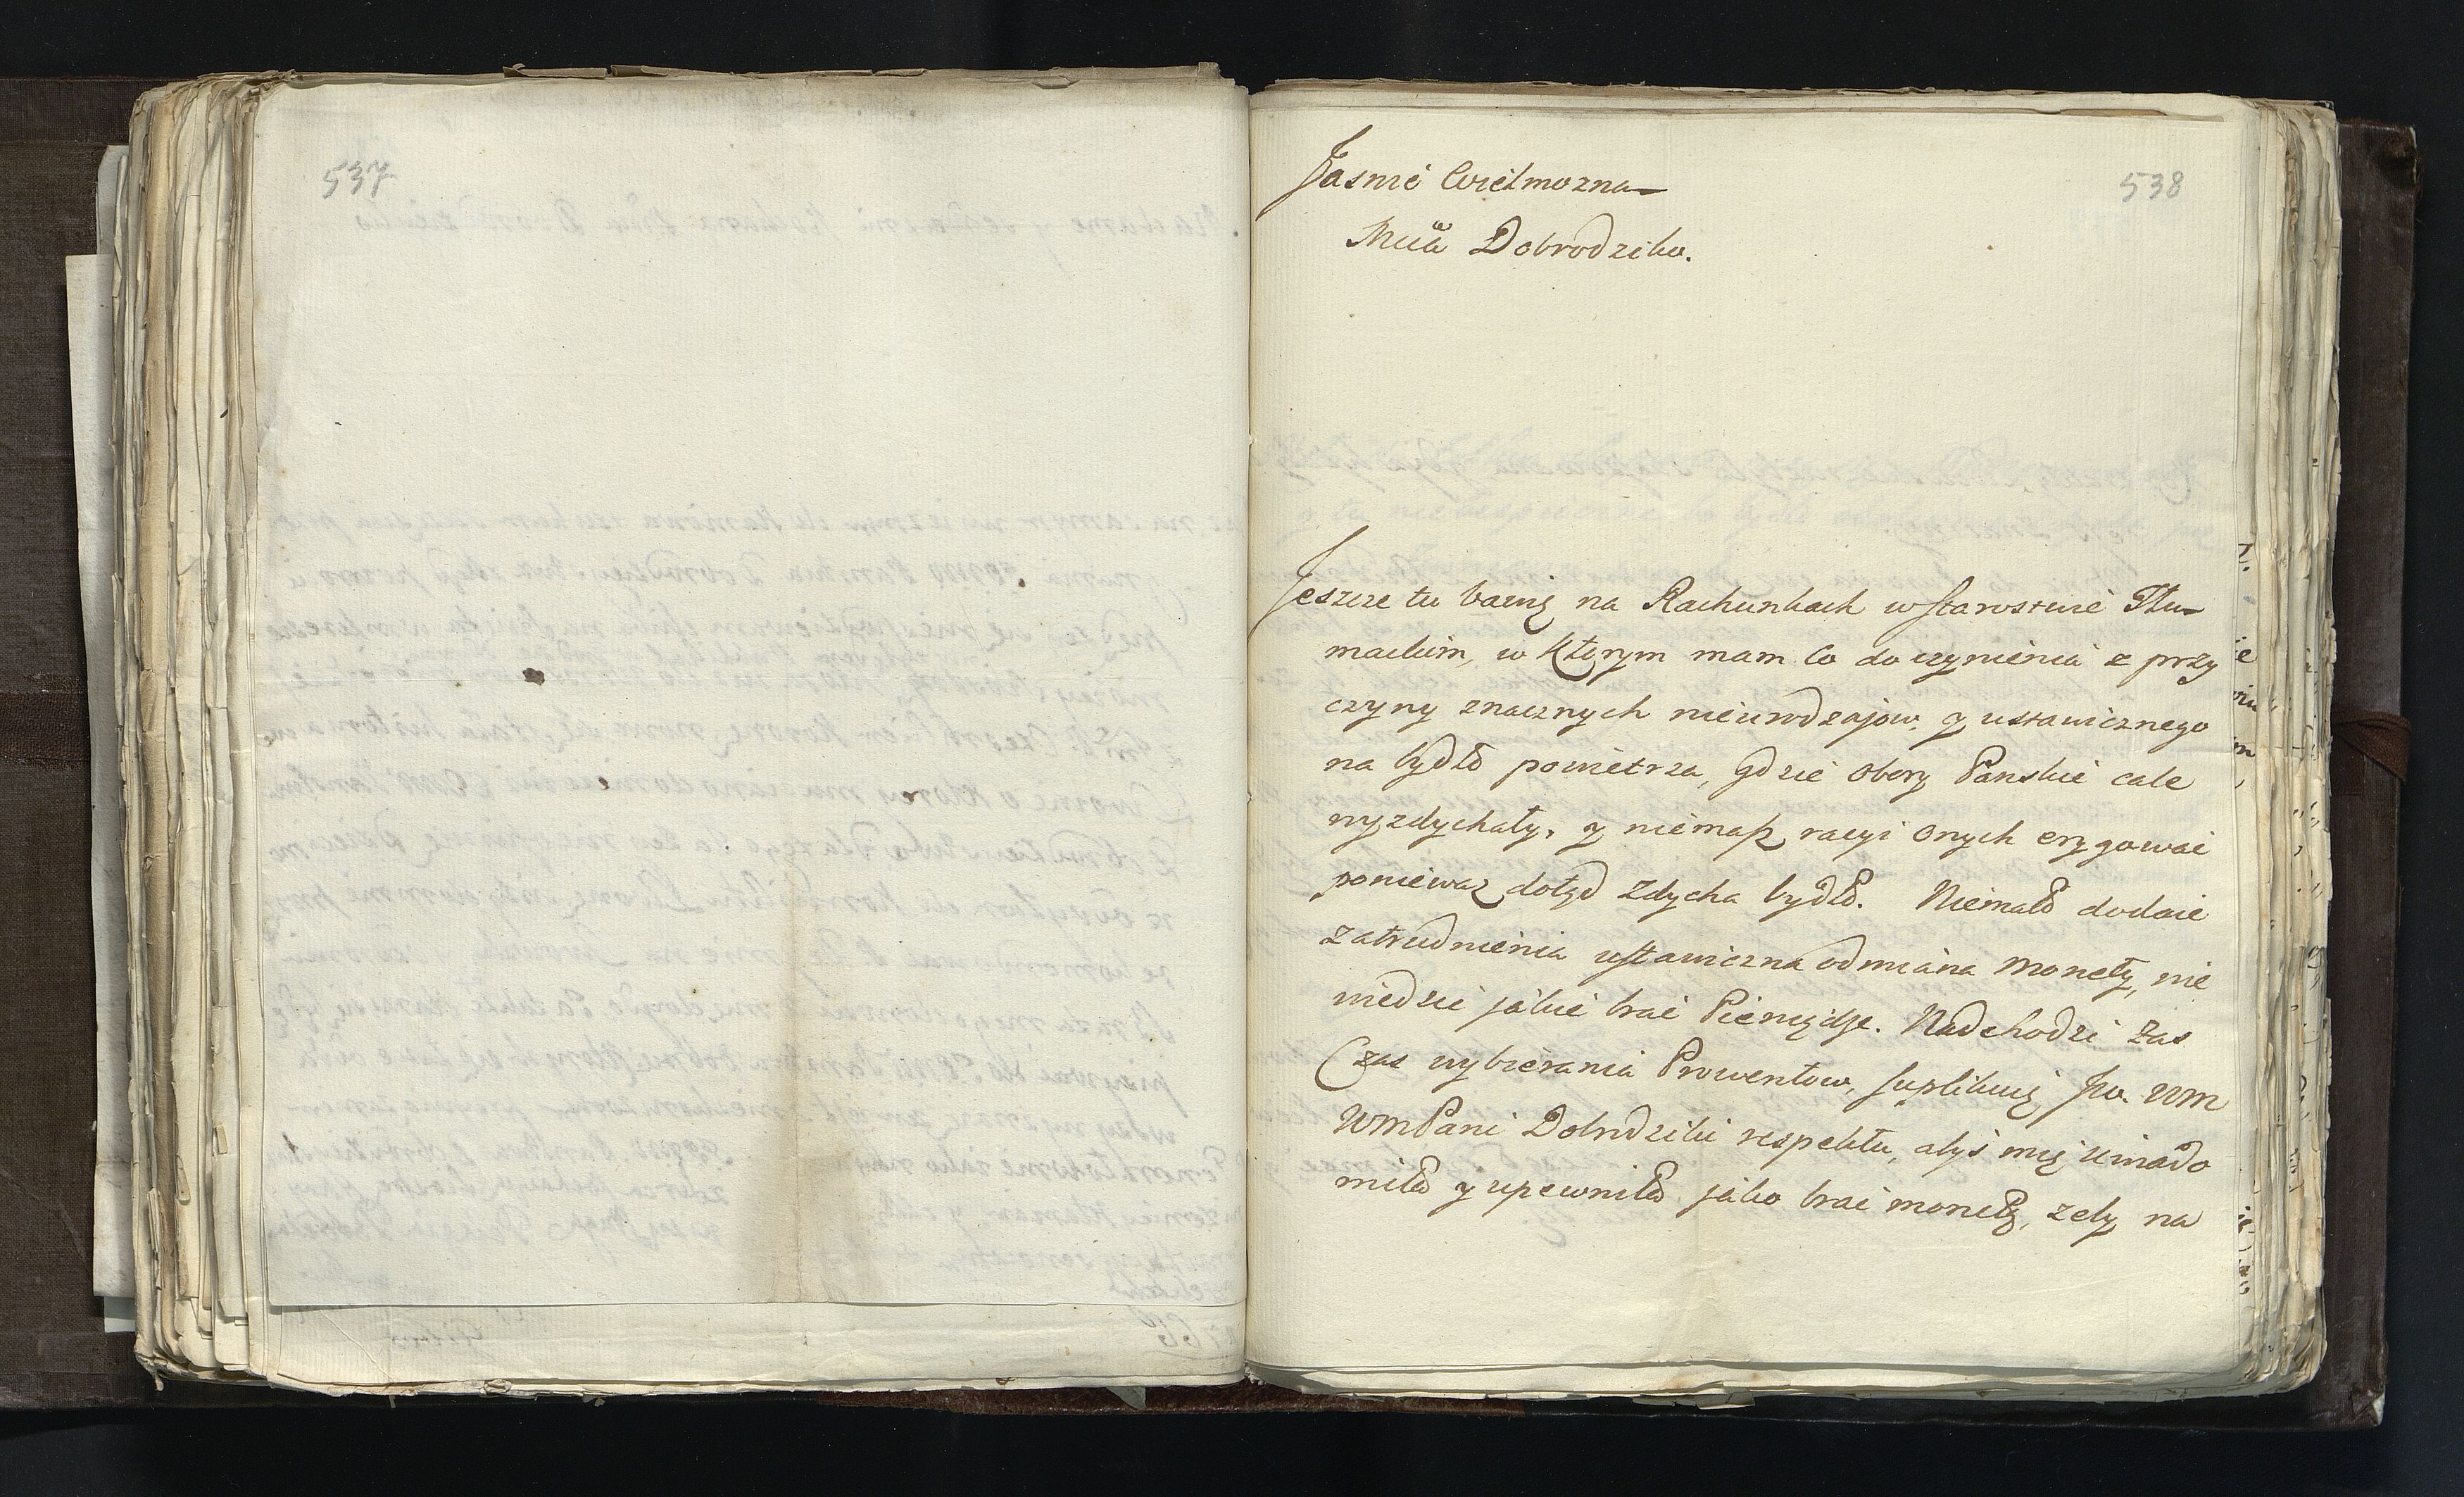 537
538
Jasnie Wielmozna
Mcia Dobrodziko.
Jeszcze tu bawię na Rachunkach w starostwie Tłu-
mackim, w ktorym mam co do czynienia z przy
czyny znacznych nieurodzajow, y ustawicznego
na bydło powietrza, gdzie Obory Panskie cale
wyzdychały, y niemasz racyi onych erygowac
poniewaz dotąd zdycha bydło. Niemało dodaie
zatrudnienia ustawiczna odmiana monety, nie
wiedziec jakie brac Pieniądze. Nadchodzi zas
Czas wybierania Prowentow, suplikuię Jw. WM
WMPani Dobrodziki respektu, abys mię uwiado
miła y upewniła jako brac monetę, zeby na